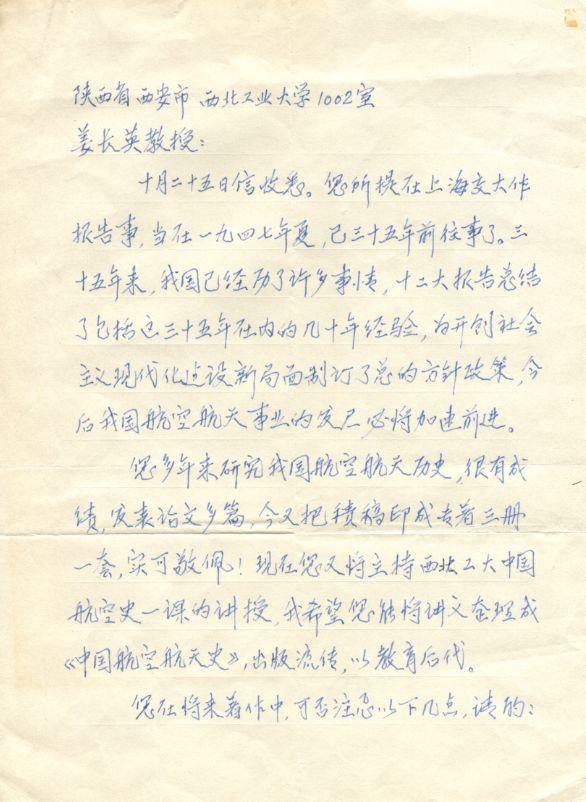 陕西省西安市 西北工业大学1002室
姜长英教授:
十月二十五日信收悉。您所提在上海交大作
报告事,当在一九四七年夏,已三十五年前往事了。三
十五年来,我国已经历了许多事情,十二大报告总结
了包括这三十五年在内的几十年经验,为开创社会
主义现代化建设新局面制订了总的方针政策,今
后我国航空航天事业的发展必将加速前进。
您多年来研究我国航空航天历史,很有成
绩,发表论文多篇,今又把积稿印成专著三册
一套,实可敬佩!现在您又将主持西北工大中国
航空史一课的讲授,我希望您能将讲义整理成
《中国航空航天史》,出版流传,以教育后代。
您在将来著作中,可否注意以下几点,请酌: